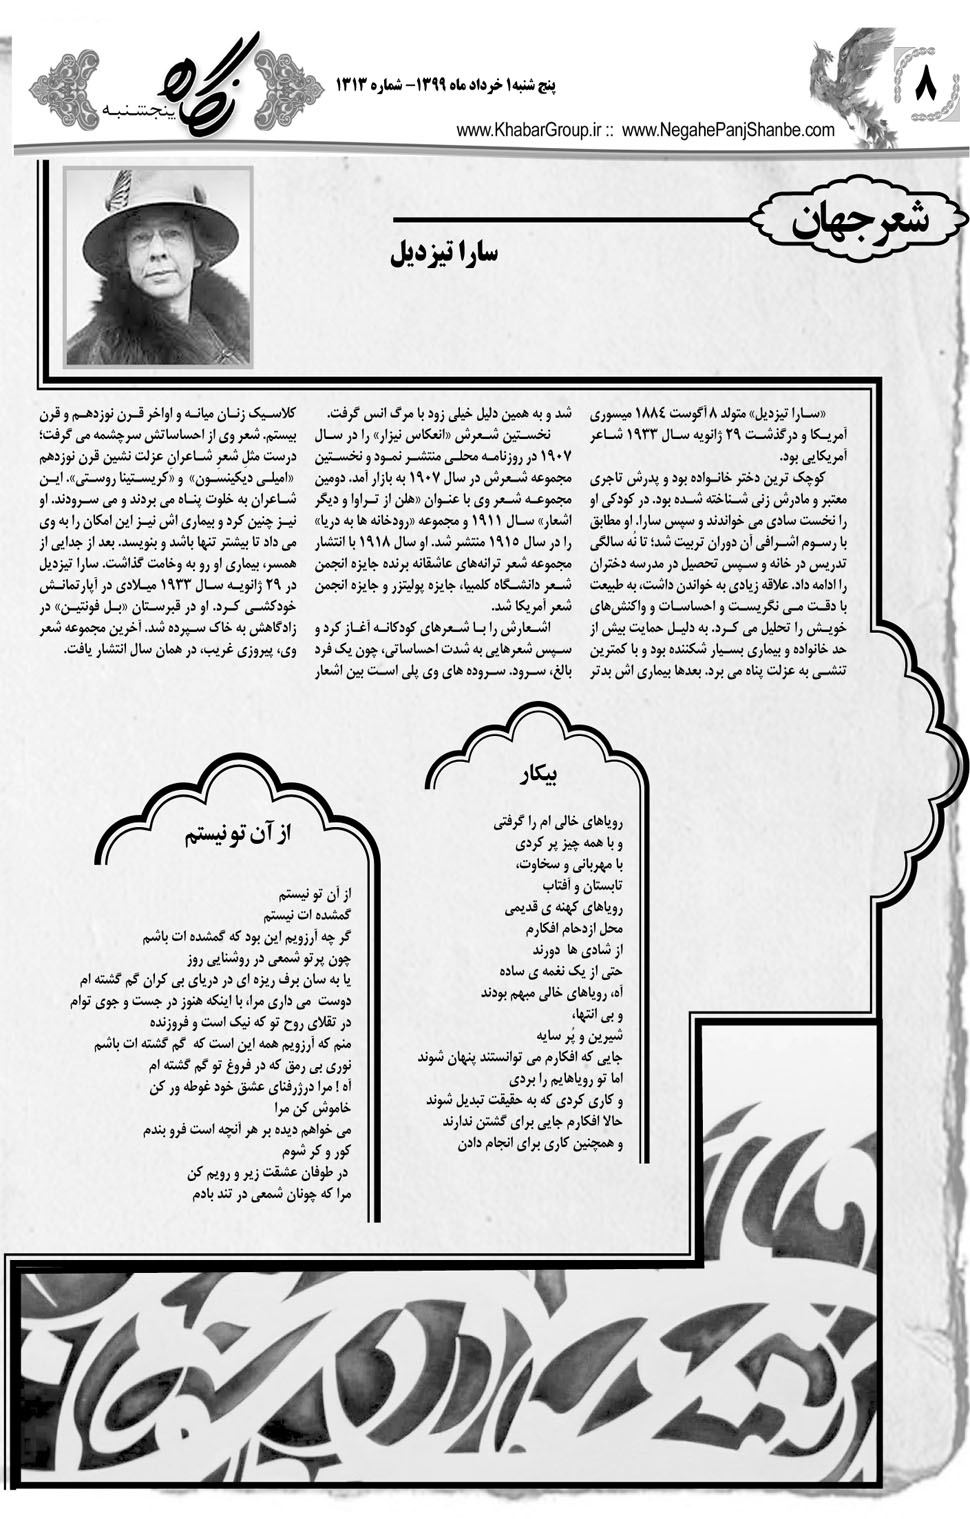 ۸
پنج شنبه۱ خرداد ماه ۱۳۹۹- شماره ۱۳۱۳
www.KhabarGroup.ir :: www.NegahePanjShanbe.com
نگاه
پنجشنبه
شعر جهان
سارا تیزدیل
«سـارا تیزدیل» متولد ۸ آگوست ۱۸۸٤ میسوری
آمریکـا و درگذشـت ۲۹ ژانویه سـال ۱۹۳۳ شـاعر
آمریکایی بود.
کوچک ترین دختر خانـواده بود و پدرش تاجری
معتبر و مادرش زنی شـناخته شـده بود. در کودکی او
را نخست سادی می خواندند و سپس سارا. او مطابق
با رسـوم اشـرافی آن دوران تربیت شد؛ تا نُه سالگی
تدریس در خانه و سـپس تحصیل در مدرسه دختران
را ادامه داد. علاقه زیادی به خواندن داشت، به طبیعت
با دقـت مـی نگریسـت و احساسـات و واکنش‌های
خویـش را تحلیل می کـرد. به دلیـل حمایت بیش از
حد خانواده و بیماری بسـیار شـکننده بود و با کمترین
تنشـی به عزلت پناه می برد. بعدها بیماری اش بدتر
شد و به همین دلیل خیلی زود با مرگ انس گرفت.
نخسـتین شـعرش «انعکاس نیزار» را در سـال
۱۹۰۷ در روزنامـه محلـی منتشـر نمـود و نخسـتین
مجموعه شـعرش در سال ۱۹۰۷ به بازار آمد. دومین
مجموعـه شـعر وی با عنـوان «هلن از تـراوا و دیگر
اشعار» سـال ۱۹۱۱ و مجموعه «رودخانه ها به دریا»
را در سال ۱۹۱۵ منتشر شد. او سال ۱۹۱۸ با انتشار
مجموعه شعر ترانه‌های عاشقانه برنده جایزه انجمن
شعـر دانشـگاه کلمبیا، جایزه پولیتزر و جایزه انجمن
شعر آمریکا شد.
اشـعارش را بـا شـعرهای کودکانـه آغـاز کرد و
سپس شعرهایی به شدت احساساتی، چون یک فرد
بالغ، سـرود. سـروده های وی پلی اسـت بین اشعار
کلاسـیک زنـان میانـه و اواخر قـرن نوزدهـم و قرن
بیستم. شعر وی از احساساتش سرچشمه می گرفت؛
درست مثل شعرِ شـاعرانِ عزلت نشین قرن نوزدهم
«امیلـی دیکینسـون» و «کریسـتینا روسـتی». ایـن
شـاعران به خلوت پنـاه می بردند و می سـرودند. او
نیـز چنین کرد و بیماری اش نیـز این امکان را به وی
می داد تا بیشتر تنها باشد و بنویسد. بعد از جدایی از
همسر، بیماری او رو به وخامت گذاشت. سارا تیزدیل
در ۲۹ ژانویـه سـال ۱۹۳۳ میـلادی در آپارتمانـش
خودکشـی کـرد. او در قبرسـتان «بـل فونتیـن» در
زادگاهش به خاک سـپرده شد. آخرین مجموعه شعر
وی، پیروزی غریب، در همان سال انتشار یافت.
بیکار
رویاهای خالی ام را گرفتی
و با همه چیز پر کردی
با مهربانی و سخاوت،
تابستان و آفتاب
رویاهای کهنه ی قدیمی
محل ازدحام افکارم
از شادی ها دورند
حتی از یک نغمه ی ساده
آه، رویاهای خالی مبهم بودند
و بی انتها،
شیرین و پُر سایه
جایی که افکارم می توانستند پنهان شوند
اما تو رویاهایم را بردی
و کاری کردی که به حقیقت تبدیل شوند
حالا افکارم جایی برای گشتن ندارند
و همچنین کاری برای انجام دادن
از آن تو نیستم
از آن تو نیستم
گمشده ات نیستم
گر چه آرزویم این بود که گمشده ات باشم
چون پرتو شمعی در روشنایی روز
یا به سان برف ریزه ای در دریای بی کران گم گشته ام
دوست می داری مرا، با اینکه هنوز در جست و جوی توام
در تقلای روح تو که نیک است و فروزنده
منم که آرزویم همه این است که گم گشته ات باشم
نوری بی رمق که در فروغ تو گم گشته ام
آه ! مرا درژرفنای عشق خود غوطه ور کن
خاموش کن مرا
می خواهم دیده بر هر آنچه است فرو بندم
کور و کر شوم
در طوفان عشقت زیر و رویم کن
مرا که چونان شمعی در تند بادم